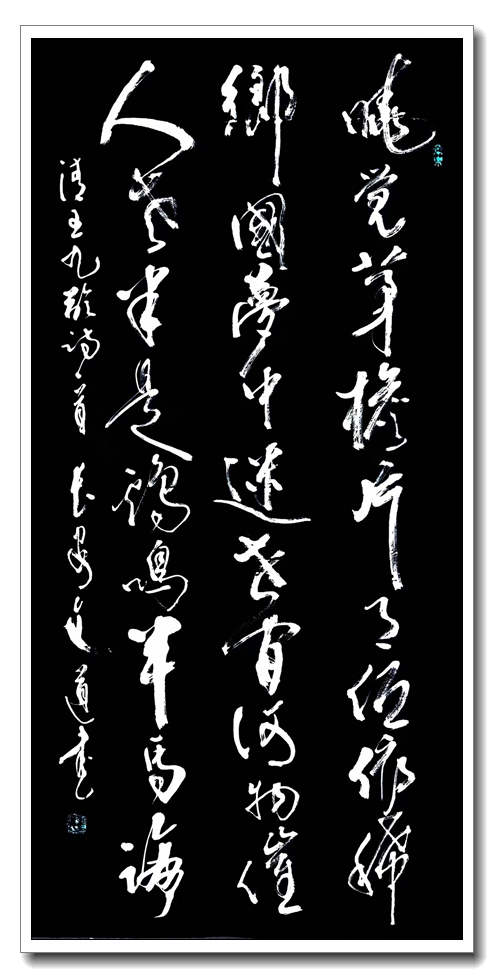 曉觉茅檐片月低依稀
鄉國夢中迷世间何物催
人老半是鸡鳴半馬蹄
清王九龄诗一首 道書